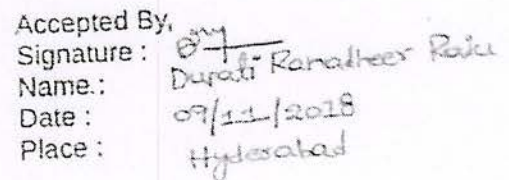 Accepted By,
Signature :
Name.: Dupati Ranadheer Raju
Date : 09/11/2018
Place : Hyderabad